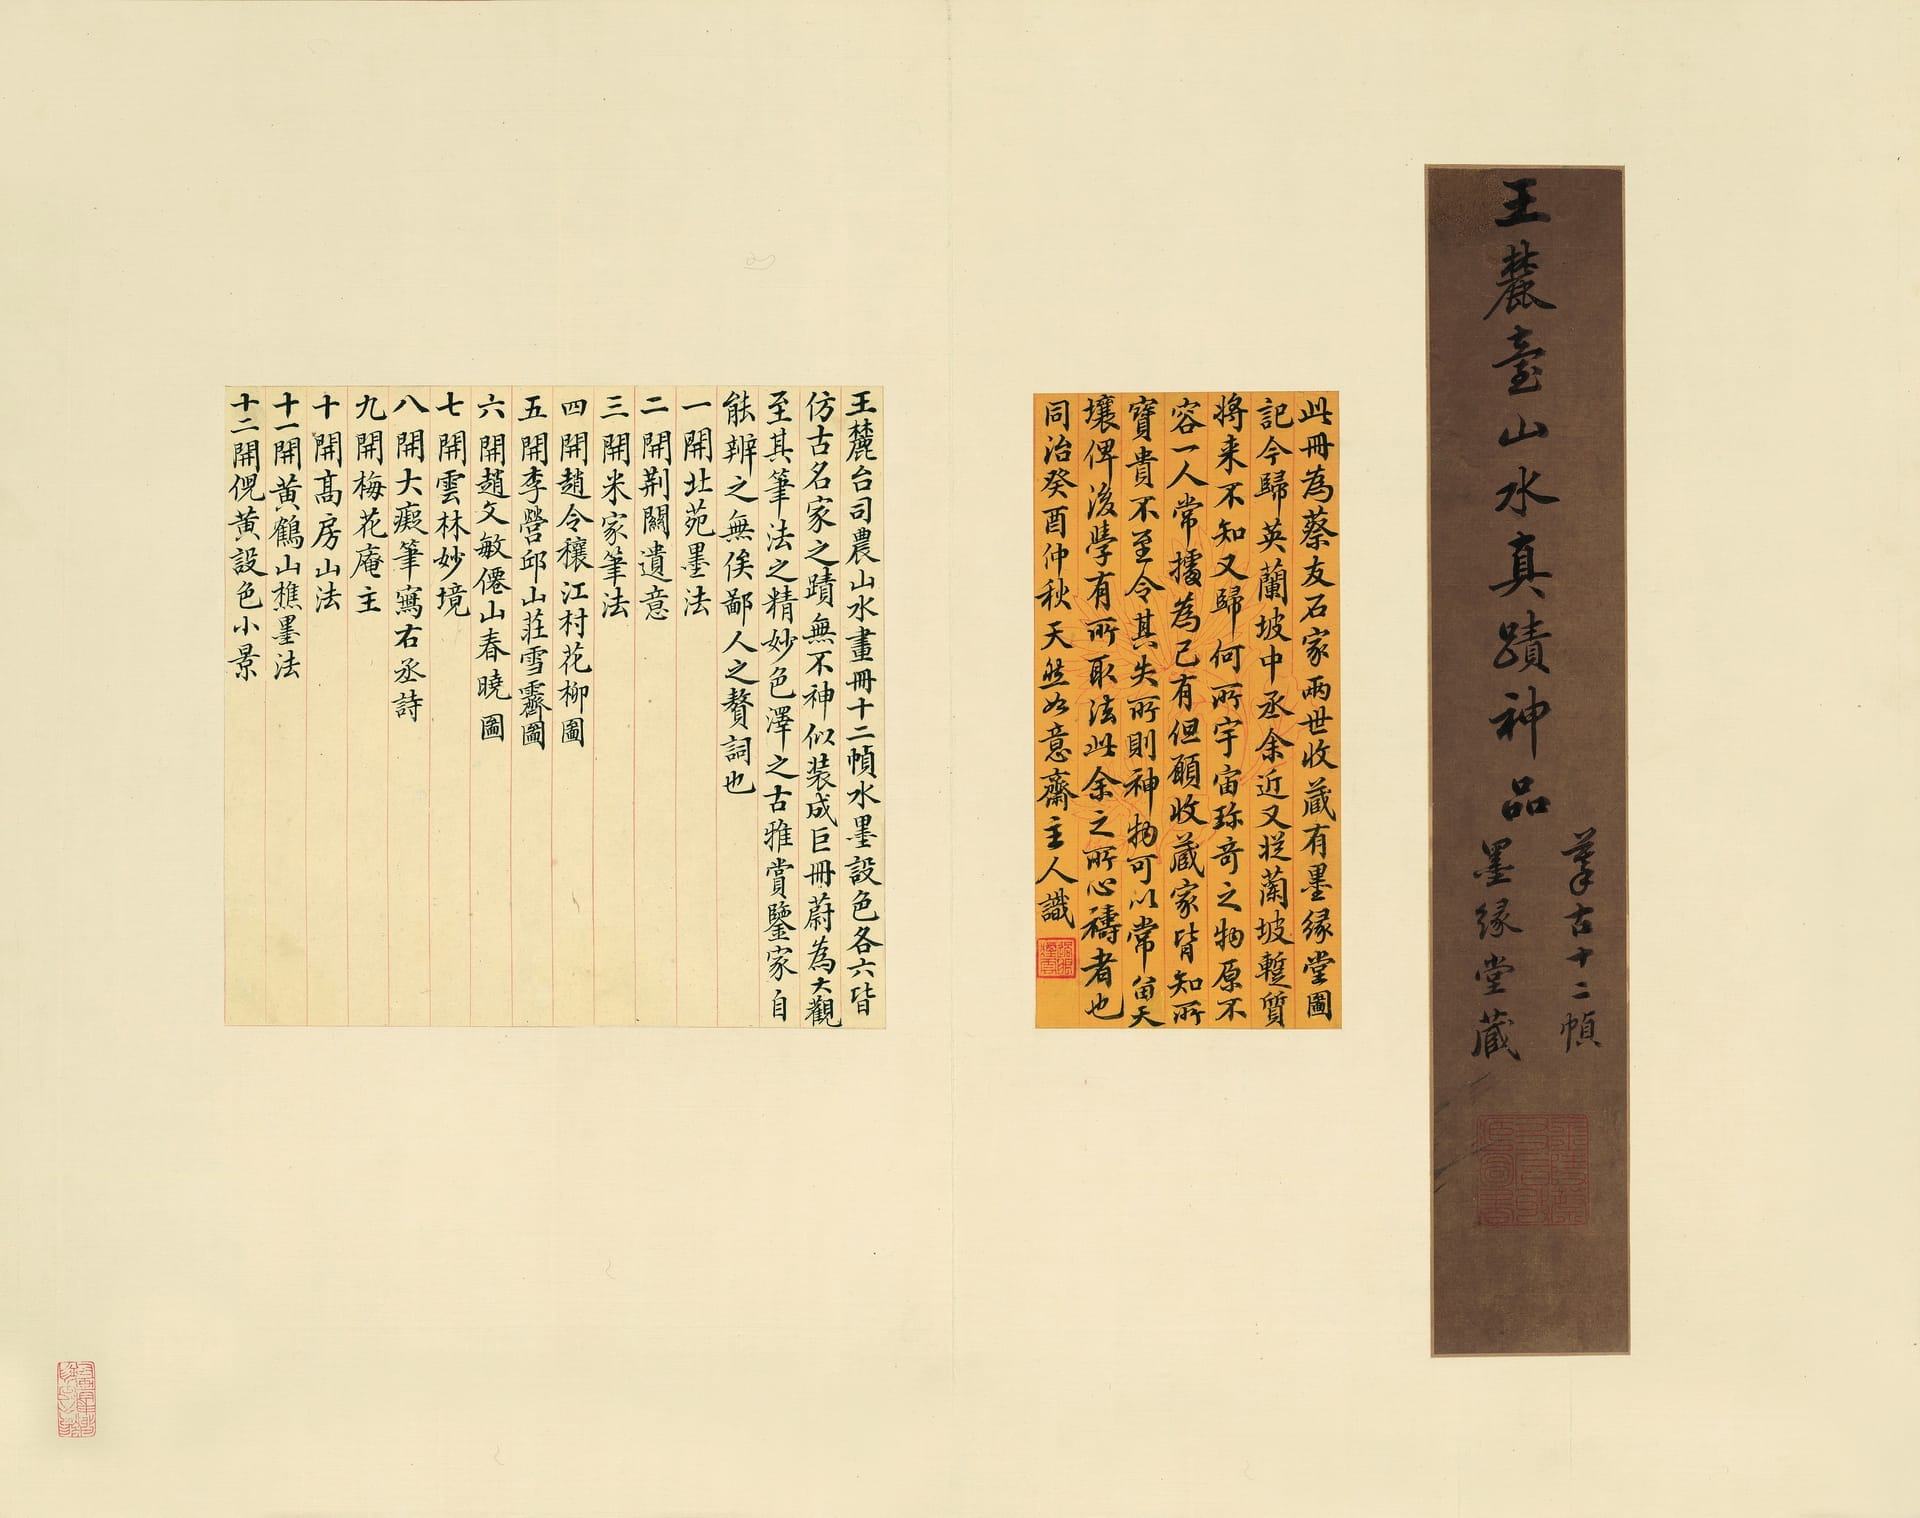 王麓臺山水真蹟神品
摹古十二幀
墨緣堂藏
此冊為蔡友石家兩世收藏有墨緣堂圖
記今歸英蘭坡中丞余近又從蘭坡蹔質
將来不知又歸何所宇宙珎奇之物原不
容一人常據為己有但願收藏家皆知所
寶貴不至令其失所則神物可以常留天
壤俾後學有所取法此余之所心禱者也
同治癸酉仲秋天然如意齋主人識
王麓台司農山水畫冊十二幀水墨設色各六皆
仿古名家之蹟無不神似装成巨冊蔚為大觀
至其筆法之精妙色澤之古雅賞鑒家自
能辨之無俟鄙人之贅詞也
一開北苑墨法
二開荆關遺意
三開米家筆法
四開趙令穰江村花柳圖
五開李營邱山莊雪霽圖
六開趙文敏僊山春曉圖
七開雲林妙境
八開大癡筆寫右丞詩
九開梅花庵主
十開高房山法
十一開黄鶴山樵墨法
十二開倪黄設色小景